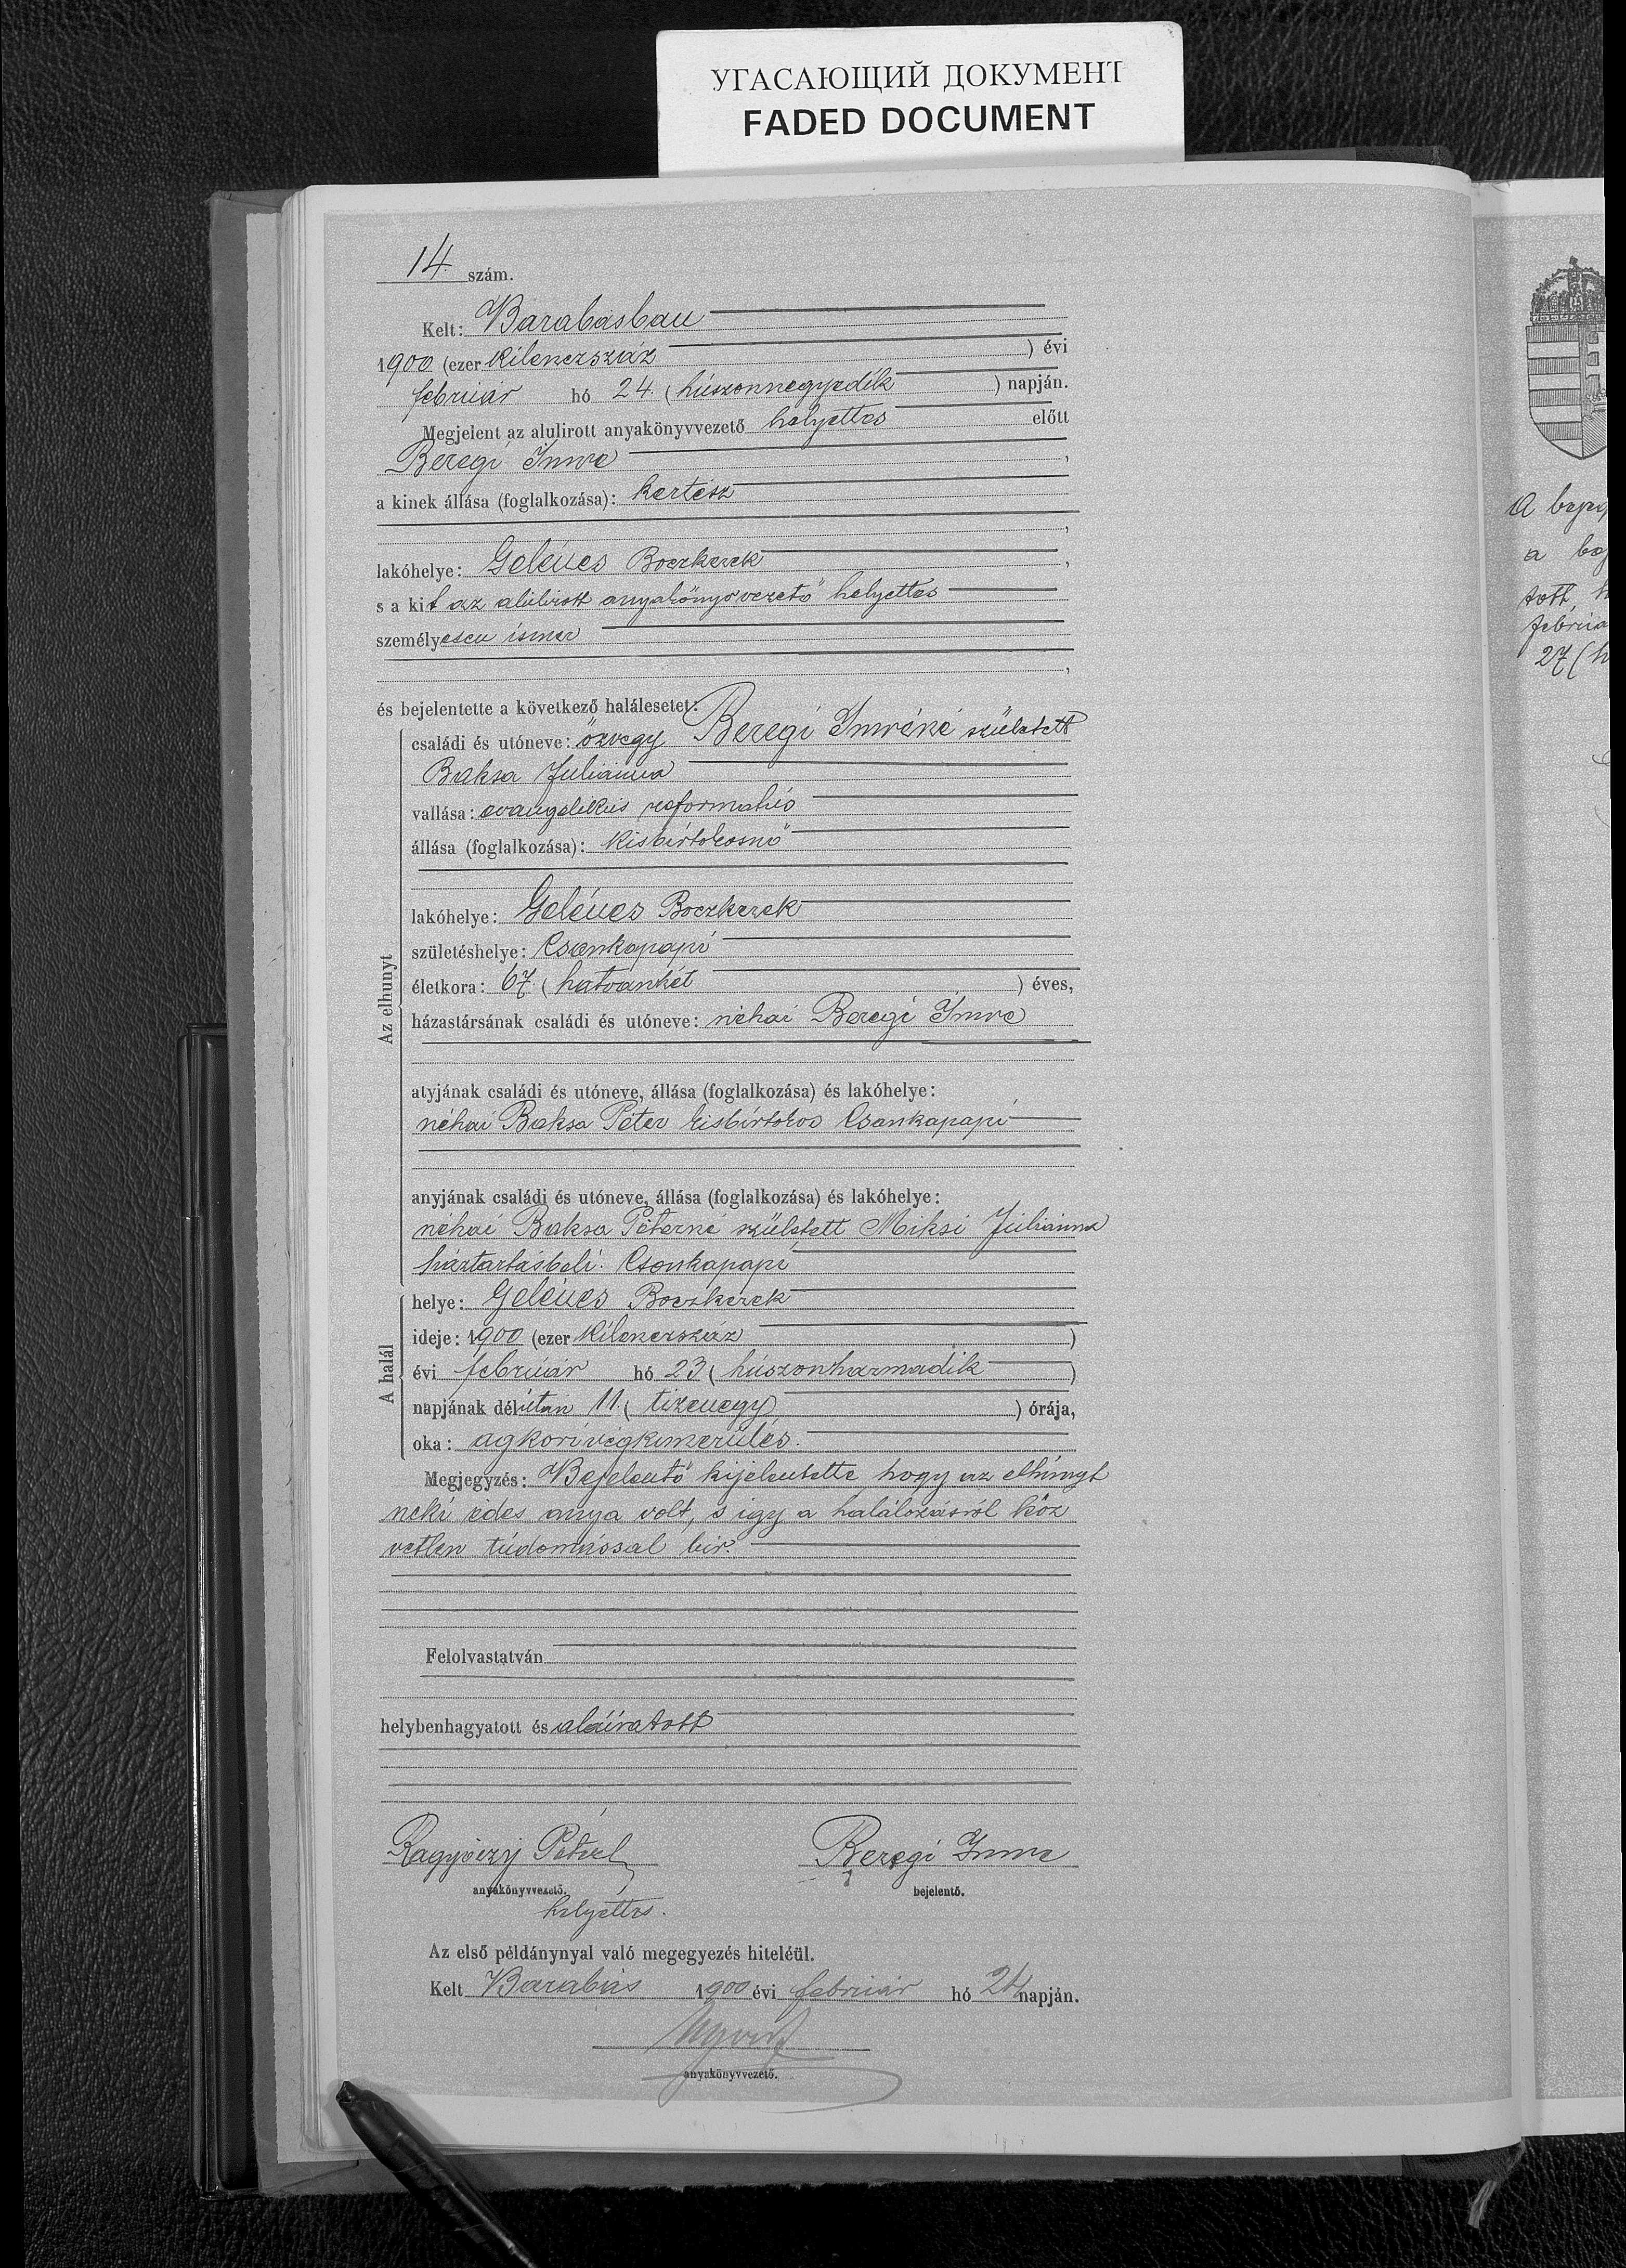 УГАСАЮЩИЙ ДОКУМЕНТ
FADED DOCUMENT
14. szám.
Kelt: Barabásban
1900 (ezer kilenczszáz ) évi
február hó 24. (húszonnegyedik ) napján.
Megjelent az alulirott anyakönyvvezető helyettes előtt
Beregi Imre ,
a kinek állása (foglalkozása): kertész
,
lakóhelye: Gelénes Boczkerek ,
s a kit az alúlirott anyakönyvvezető helyettes
személyesen ismer
,
és bejelentette a következő halálesetet:
családi és utóneve: özvegy Beregi Imréné született
Baksa Juliánna
vallása: evangelikus reformatus
állása (foglalkozása): kisbirtokosnő
lakóhelye: Gelénes Boczkerek
születéshelye: Csonkapapi
életkora: 67. (hatvanhét ) éves,
házastársának családi és utóneve: néhai Beregi Imre
atyjának családi és utóneve, állása (foglalkozása) és lakóhelye:
néhai Baksa Péter kisbirtokos Csonkapapi
anyjának családi és utóneve, állása (foglalkozása) és lakóhelye:
néhai Baksa Péterné született Miksi Juliánna
háztartásbeli Csonkapapi
Az elhunyt
helye: Gelénes Boczkerek
ideje: 1900 (ezer kilenczszáz )
évi február hó 23 (húszonharmadik )
napjának délután 11. (tizenegy ) órája,
oka: agkori végkimerülés.
A halál
Megjegyzés: Bejelentő kijelentette hogy az elhúnyt
neki édes anya volt, s igy a halálozásról köz
vetlen túdomással bir.
Felolvastatván
helybenhagyatott és aláiratott
Péter Beregi Imre
anyakönyvvezető. bejelentő.
helyettes.
Az első példánynyal való megegyezés hiteléül.
Kelt Barabás 1900 évi február hó 24 napján.
anyakönyvvezető.
A
a
tott, h
februá
27 (h